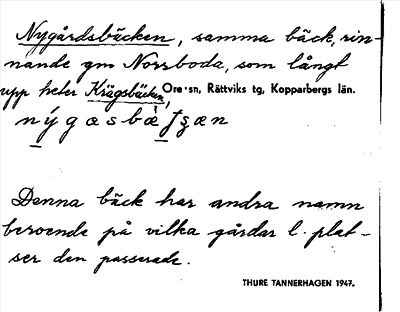 Nygårdsbäcken, samma bäck, rin-
nande gm Norrboda, som långt
upp heter Krägsbäcken, Ore sn, Rättviks tg, Kopparbergs län.
Denna bäck har andra namn
beroende på vilka gårdar l. plat-
ser den passerade.
THURE TANNERHAGEN 1947.